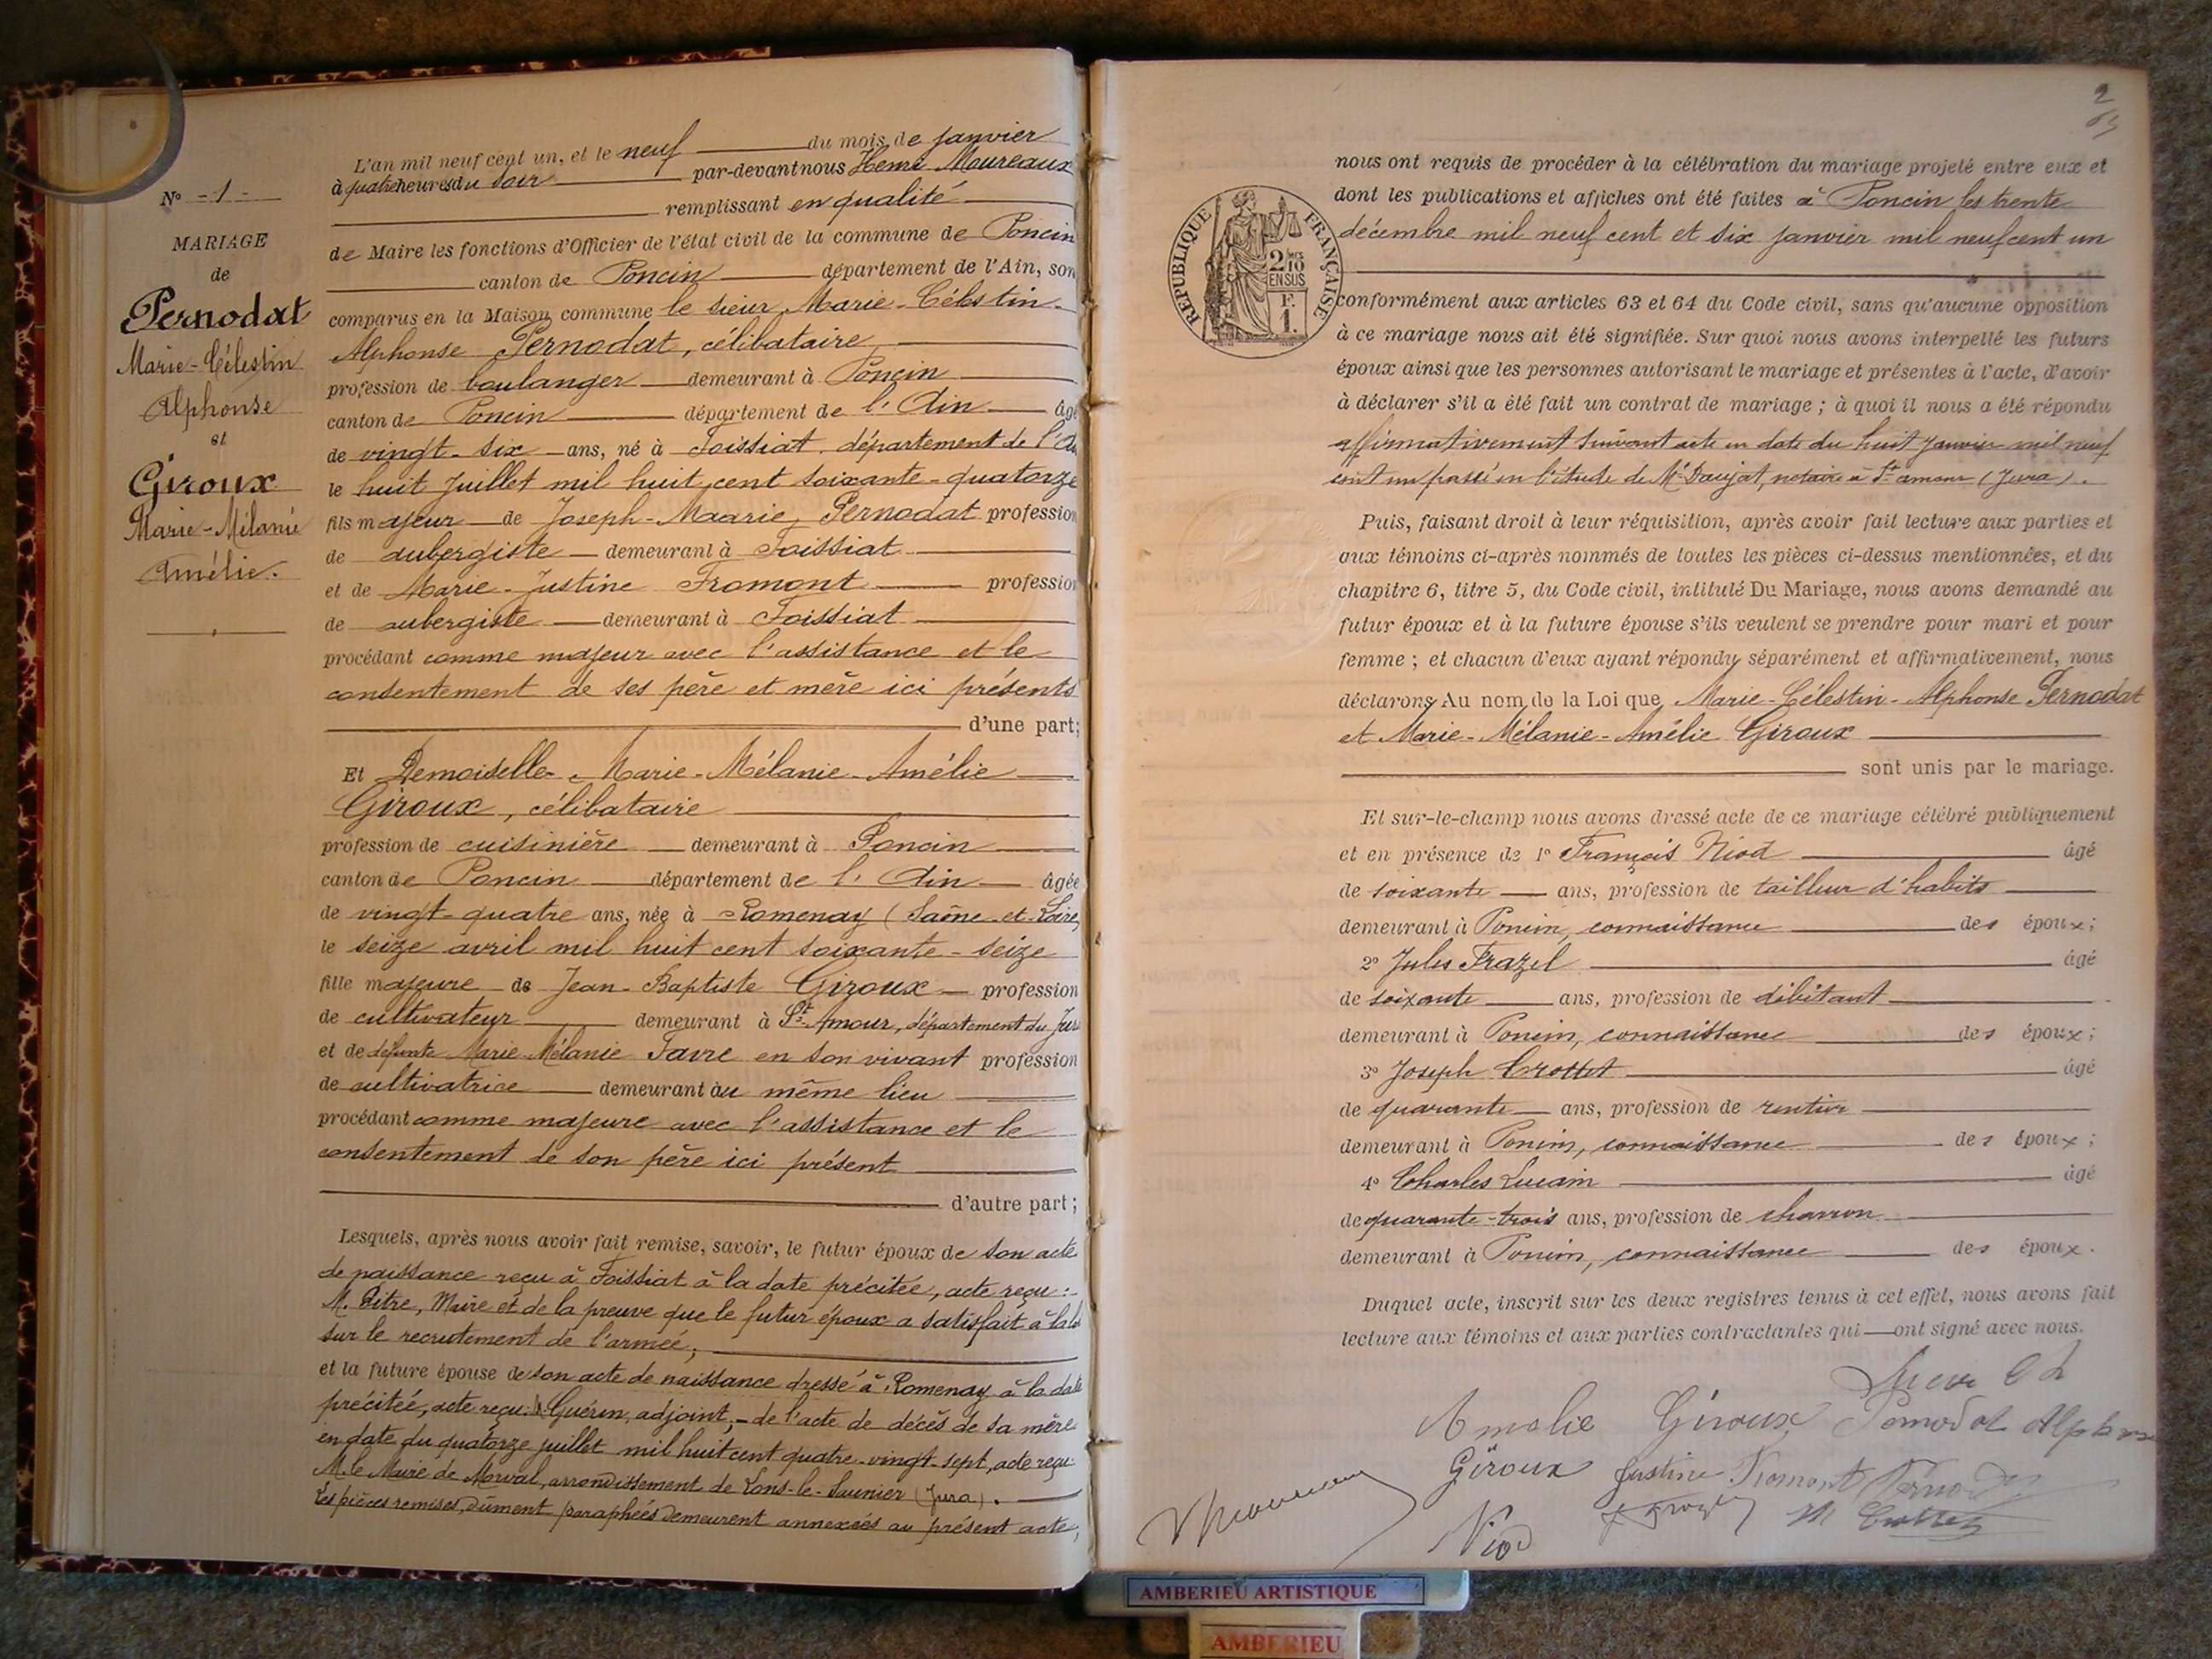 N° - 1 -
MARIAGE
de
Pernodat
Marie-Célestin
Alphonse
et
Giroux
Marie-Mélanie
Amélie.
L'an mil neuf cent un, et le neuf du mois de janvier
à quatre heures du soir par-devant nous Henri Moureaux
remplissant en qualité
de Maire les fonctions d'Officier de l'état civil de la commune de Poncin
canton de Poncin département de l'Ain, son
comparus en la Maison commune le sieur Marie-Célestin-
Alphonse Pernodat, célibataire
profession de boulanger demeurant à Poncin
canton de Poncin département de l'Ain âgé
de vingt-six ans, né à Foissiat département de l'Ain
le huit juillet mil huit cent soixante-quatorze
fils majeur de Joseph-Maarie Pernodat profession
de aubergiste demeurant à Foissiat
et de Marie-Justine Fromont profession
de aubergiste demeurant à Foissiat
procédant comme majeur avec l'assistance et le
consentement de ses père et mère ici présents
d'une part;
Et Demoiselle Marie-Mélanie-Amélie
Giroux, célibataire
profession de cuisinière demeurant à Poncin
canton de Poncin département de l'Ain âgée
de vingt-quatre ans, née à Romenay (Saône-et-Loire)
le seize avril mil huit cent soixante-seize
fille majeure de Jean-Baptiste Giroux profession
de cultivateur demeurant à St-Amour, département du Jura
et de défunte Marie Mélanie Favre en son vivant profession
de cultivatrice demeurant au même lieu
procédant comme majeure avec l'assistance et le
consentement de son père ici présent
d'autre part;
Lesquels, après nous avoir fait remise, savoir, le futur époux de son acte
de naissance reçu à Foissiat à la date précitée, acte reçu:
M. Pitre, Maire et de la preuve que le futur époux a satisfait à la loi
sur le recrutement de l'armée;
et la future épouse de son acte de naissance dressé à Romenay à la date
précitée, acte reçu: Guérin, adjoint; - de l'acte de décès de sa mère
en date du quatorze juillet mil huit cent quatre-vingt-sept, acte reçu
M. le Maire de Morval, arrondissement de Lons-le-Saunier (Jura).
Les pièces remises, dûment paraphées demeurent annexées au présent acte,
2
RÉPUBLIQUE FRANÇAISE
2/10
EN SUS
F.
1.
nous ont requis de procéder à la célébration du mariage projeté entre eux et
dont les publications et affiches ont été faites à Poncin les trente
décembre mil neuf cent et six janvier mil neuf cent un
conformément aux articles 63 et 64 du Code civil, sans qu'aucune opposition
à ce mariage nous ait été signifiée. Sur quoi nous avons interpellé les futurs
époux ainsi que les personnes autorisant le mariage et présentes à l'acte, d'avoir
à déclarer s'il a été fait un contrat de mariage; à quoi il nous a été répondu
affirmativement suivant acte en date du huit janvier mil neuf
cent un passé en l'étude de Me Daujat, notaire à St amour (Jura).
Puis, faisant droit à leur réquisition, après avoir fait lecture aux parties et
aux témoins ci-après nommés de toutes les pièces ci-dessus mentionnées, et du
chapitre 6, titre 5, du Code civil, intitulé Du Mariage, nous avons demandé au
futur époux et à la future épouse s'ils veulent se prendre pour mari et pour
femme; et chacun d'eux ayant répondu séparément et affirmativement, nous
déclarons Au nom de la Loi que Marie-Célestin-Alphonse Pernodat
et Marie-Mélanie-Amélie Giroux
sont unis par le mariage.
Et sur-le-champ nous avons dressé acte de ce mariage célébré publiquement
et en présence de 1° François Niod âgé
de soixante ans, profession de tailleur d'habits
demeurant à Poncin, connaissance des époux;
2° Jules Frazel âgé
de soixante ans, profession de débitant
demeurant à Poncin, connaissance des époux;
3° Joseph Crottet âgé
de quarante ans, profession de rentier
demeurant à Poncin, connaissance des époux;
4° Charles Lucain âgé
de quarante-trois ans, profession de charron
demeurant à Poncin, connaissance des époux.
Duquel acte, inscrit sur les deux registres tenus à cet effet, nous avons fait
lecture aux témoins et aux parties contractantes qui ont signé avec nous.
Amelie Giroux Pernodat Alphonse
Giroux Justine Fromont Pernodat
Niod
AMBERIEU ARTISTIQUE
AMBERIEU